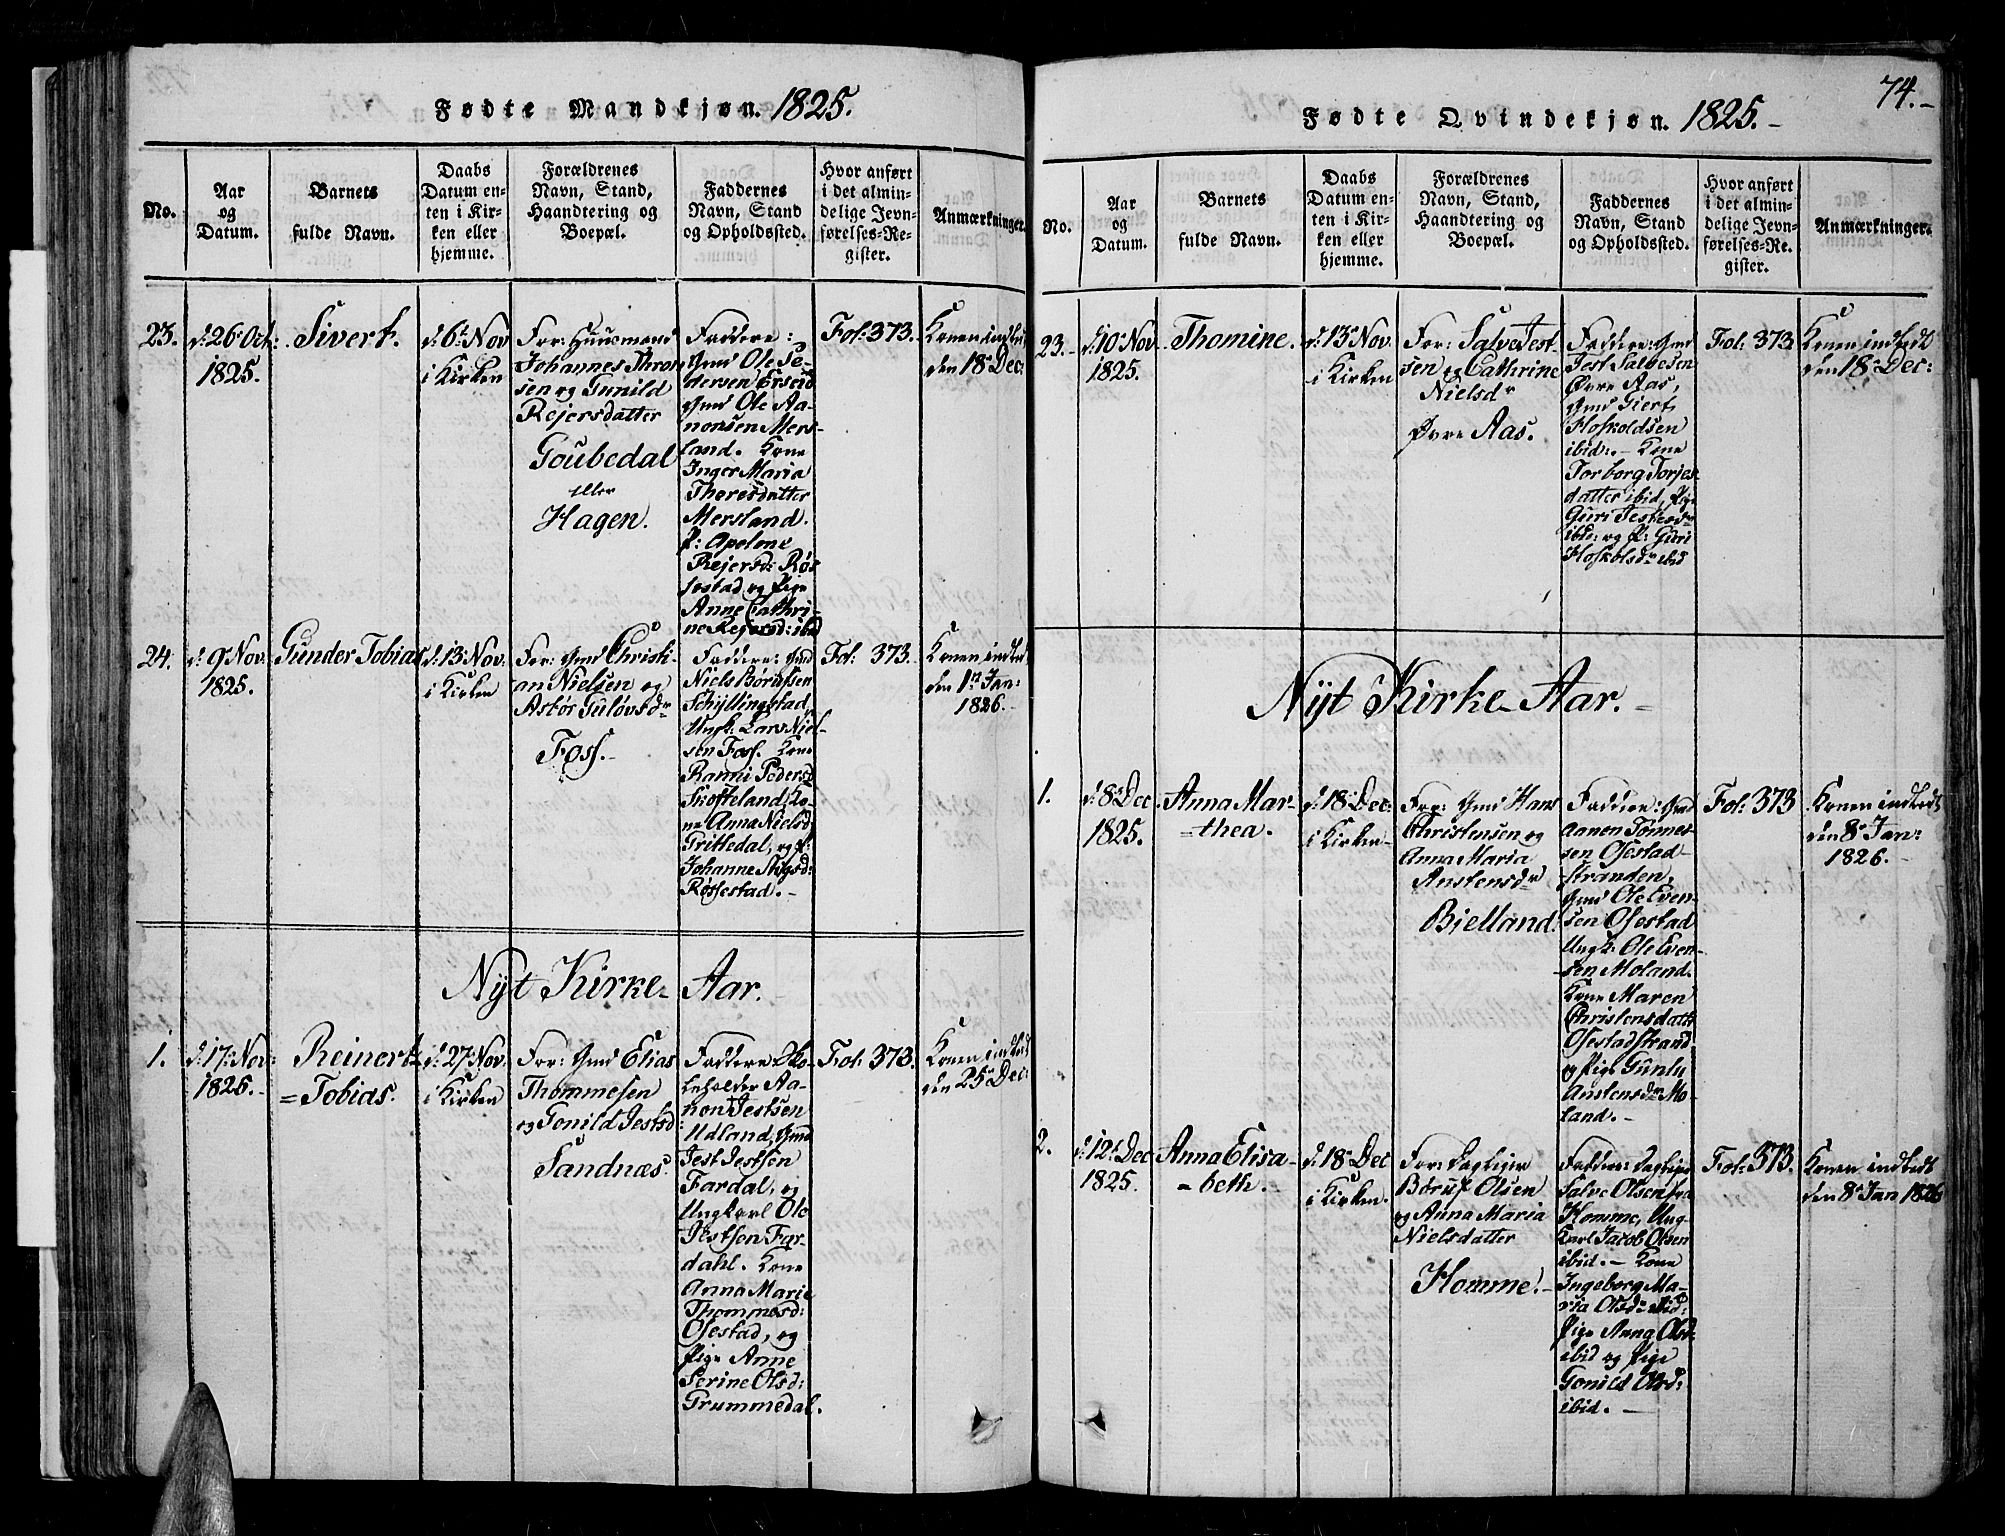 Fødte Mandkjøn. 1825.
No.
Aar
og
Datum.
Barnets
fulde Navn.
Daabs
Datum en-
ten i Kir-
ken eller
hjemme.
Forældrenes
Navn, Stand,
Haandtering og
Boepæl.
Faddernes
Navn, Stand
og Opholdssted.
Hvor anført
i det almin-
delige Jevn-
førelses-Re-
gister.
Anmærkninger.
23.
d: 26 Oct:
1825.
Sivert.
d: 6t Nov
i Kirken
For: Huusmand
Johannes Thron
sen og Gunild
Rejersdatter
Goubedal
eller
Hagen.
Faddere:
Gmd Ole Pe-
dersen Erseid
Gmd Ole Aa-
nonsen Mers-
land. Kone
Inger Maria
Theresdatter
Mersland.
P: Apelone
Rejersd: Røs
sestad og Pige
Anne Cathri-
ne Rejersd: ibid
Fol: 373.
Konen indledt
den 18 Dec:
24.
d: 9 Nov.
1825.
Gunder Tobias
d: 13 Nov.
i Kirken
For: Gmd Christi-
an Nielsen og
Astør Guløvsdr
Foss.-
Faddere: Gmd
Niels Børufsen
Schjllingstad,
Ungk: Lars Niel-
sen Foss. Kone
Ranni Pedersd
Skofteland, Ko-
ne Anna Nielsd
Grittedal, og P:
Johanne Stigsd:
Røsestad.-
Fol: 373.
Konen indled
den 1st Jan:
1826.-
Nyt Kirke-Aar.
1.
d: 17: Nov:
1825.-
Reinert
=Tobias.
d: 27: Nov.
i Kirken
For: Gmd Elias
Thommesen
og Tonild Jestsd
Sandnæs.
Faddere Sko-
leholder Aa-
non Jestsen
Udland, Gmd
Jest Jestsen
Fardal, og
Ungkarl Ole
Jestsen Far-
dahl. Kone
Anna Marie
Thommesd:
Osestad, og
Pige Anne
Serine Olsd:
Grummedal.
Fol: 373.
Konen indled
den 25 Dec:
74.-
Fødte Qvindekjøn. 1825.-
No.
Aar
og
Datum.
Barnets
fulde Navn.
Daabs
Datum en-
ten i Kir-
ken eller
hjemme.
Forældrenes
Navn, Stand,
Haandtering og
Boepæl.
Faddernes
Navn, Stand
og Opholdssted.
Hvor anført
i det almin-
delige Jevn-
førelses-Re-
gister.
Anmærkninger.
23.-
d: 10 Nov.
1825.
Thomine.
d: 13 Nov.
i Kirken
For: Salve Jest-
sen og Cathrine
Nielsdr
Øvre Aas.
Faddere: Gmd
Jest Salvesen
Øvre Aas,
Gmd Giert
Hoskoldsen
ibid:.- Kone
Torborg Torjes-
datter ibid, Pige
Guri Jestesdr
ibid: og P: Guri
Hoskolsdr ibid
Fol: 373.
Konen indledt
den 18 Dec:
Nyt Kirke-Aar.-
1.
d: 8 Dec
1825.
Anna Mar-
=thea.
d: 18 Dec:
i Kirken-
For: Gmd Hans
Christensen og
Anna Maria
Anstensdr
Bjelland.
Faddere: Gmd
Aanen Tønnes-
sen Osestad-
stranden,
Gmd Ole Even-
sen Osestad
Ungk: Ole Even-
sen Moland.
Kone Maren
Christensdatt
Osestadstrand
og Pige Gunlu
Anstensdr Mo-
land.-
Fol: 373
Konen indledt
den 8 Jan:
1826.-
2.
d: 12: Dec
1825.
Anna Elisa-
=beth.-
d: 18 Dec
i Kirken.
For: Dagliger
Børuf Olsen
og Anna Maria
Nielsdatter
Homme.-
Faddere: Dagliger
Salve Olsen fra
Homme, Ung-
karl Jacob Olsen
ibid.- Kone
Ingeborg Ma-
ria Olsd: ibid:
Pige Anna Olsd:
ibid og Pige
Gonild Olsd:
ibid.-
Fol: 373.
Konen indledt
den 8 Jan 1826